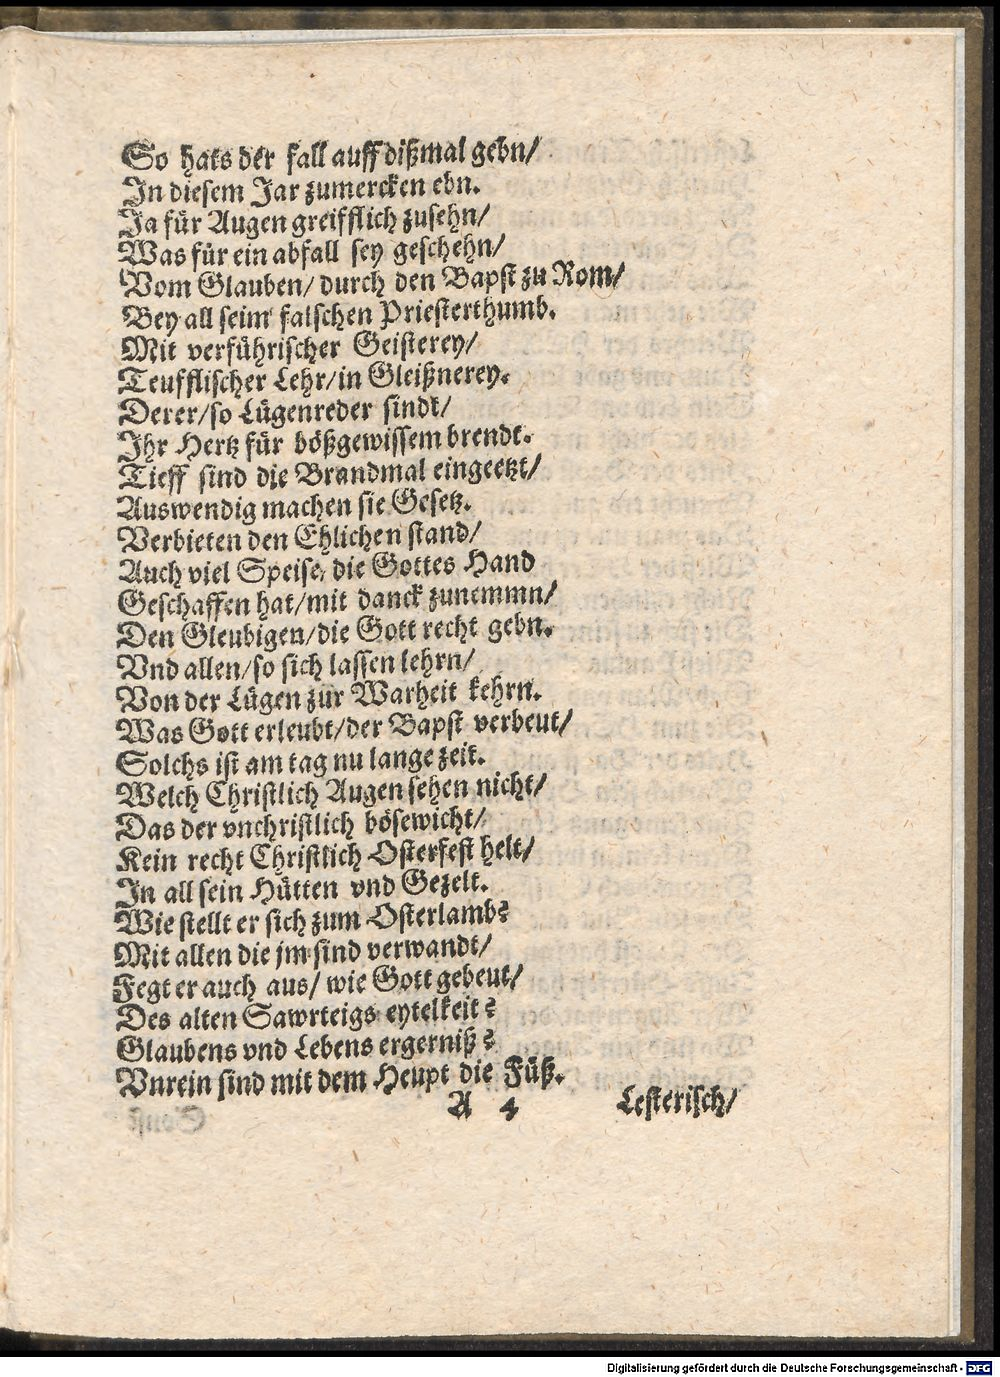 So hats der fall auff dißmal gebn/
In diesem Jar zumercken ebn.
Ja für Augen greifflich zusehn/
Was für ein abfall sey geschehn/
Vom Glauben/ durch den Bapst zu Rom/
Bey all seim falschen Priesterthumb.
Mit verführischer Geisterey/
Teufflischer Lehr/in Gleißnerey.
Derer/so Lügenreder sindt/
Ihr Hertz für bößgewissem brendt.
Tieff sind die Brandmal eingeetzt/
Auswendig machen sie Gesetz.
Verbieten den Ehlichen stand/
Auch viel Speise, die Gottes Hand
Geschaffen hat/mit danck zunemmn/
Den Gleubigen/die Gott recht gebn.
Vnd allen/so sich lassen lehrn/
Von der Lügen zur Warheit kehrn.
Was Gott erleubt/der Bapst verbeut/
Solchs ist am tag nu lange zeit.
Welch Christlich Augen sehen nicht/
Das der vnchristlich bösewicht/
Kein recht Christlich Osterfest helt/
In all sein Hütten vnd Gezelt.
Wie stellt er sich zum Osterlamb?
Mit allen die jm sind verwandt/
Fegt er auch aus/ wie Gott gebeut/
Des alten Sawrteigs eytelkeit?
Glaubens vnd Lebens ergerniß?
Vnrein sind mit dem Heupt die Füß.
A 4 Lesterisch/
Digitalisierung gefördert durch die Deutsche Forschungsgemeinschaft - DFG